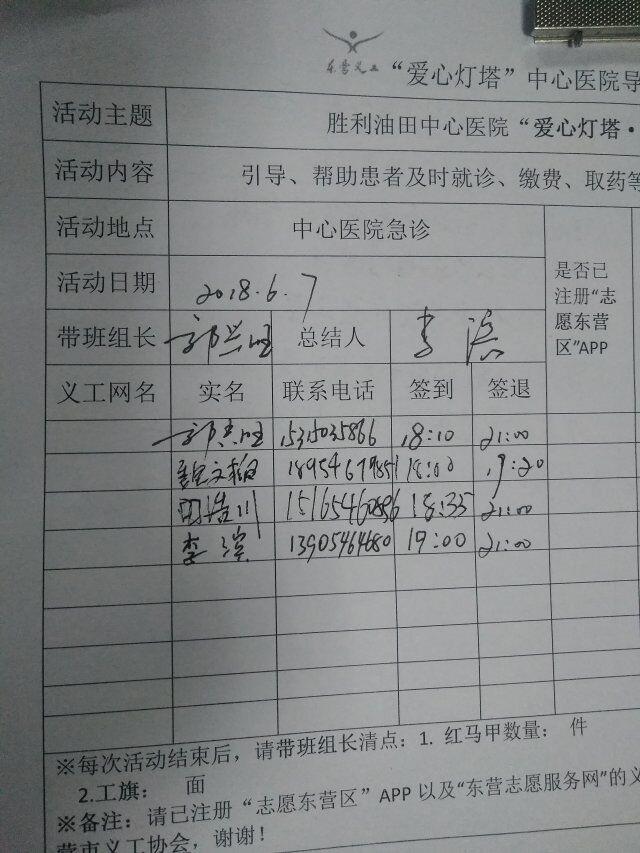 东营义工
“爱心灯塔”中心医院导
活动主题 胜利油田中心医院“爱心灯塔·
活动内容 引导、帮助患者及时就诊、缴费、取药等
活动地点 中心医院急诊
活动日期 2018.6.7
是否已注册“志愿东营区”APP
带班组长 郭兴旺 总结人 李滨
义工网名 实名 联系电话 签到 签退
18:10 21:00
18:00 19:20
18:35 21:00
李滨 13905464680 19:00 21:00
※每次活动结束后，请带班组长清点：1. 红马甲数量： 件
2.工旗： 面
※备注：请已注册“志愿东营区”APP 以及“东营志愿服务网”的义
营市义工协会，谢谢！